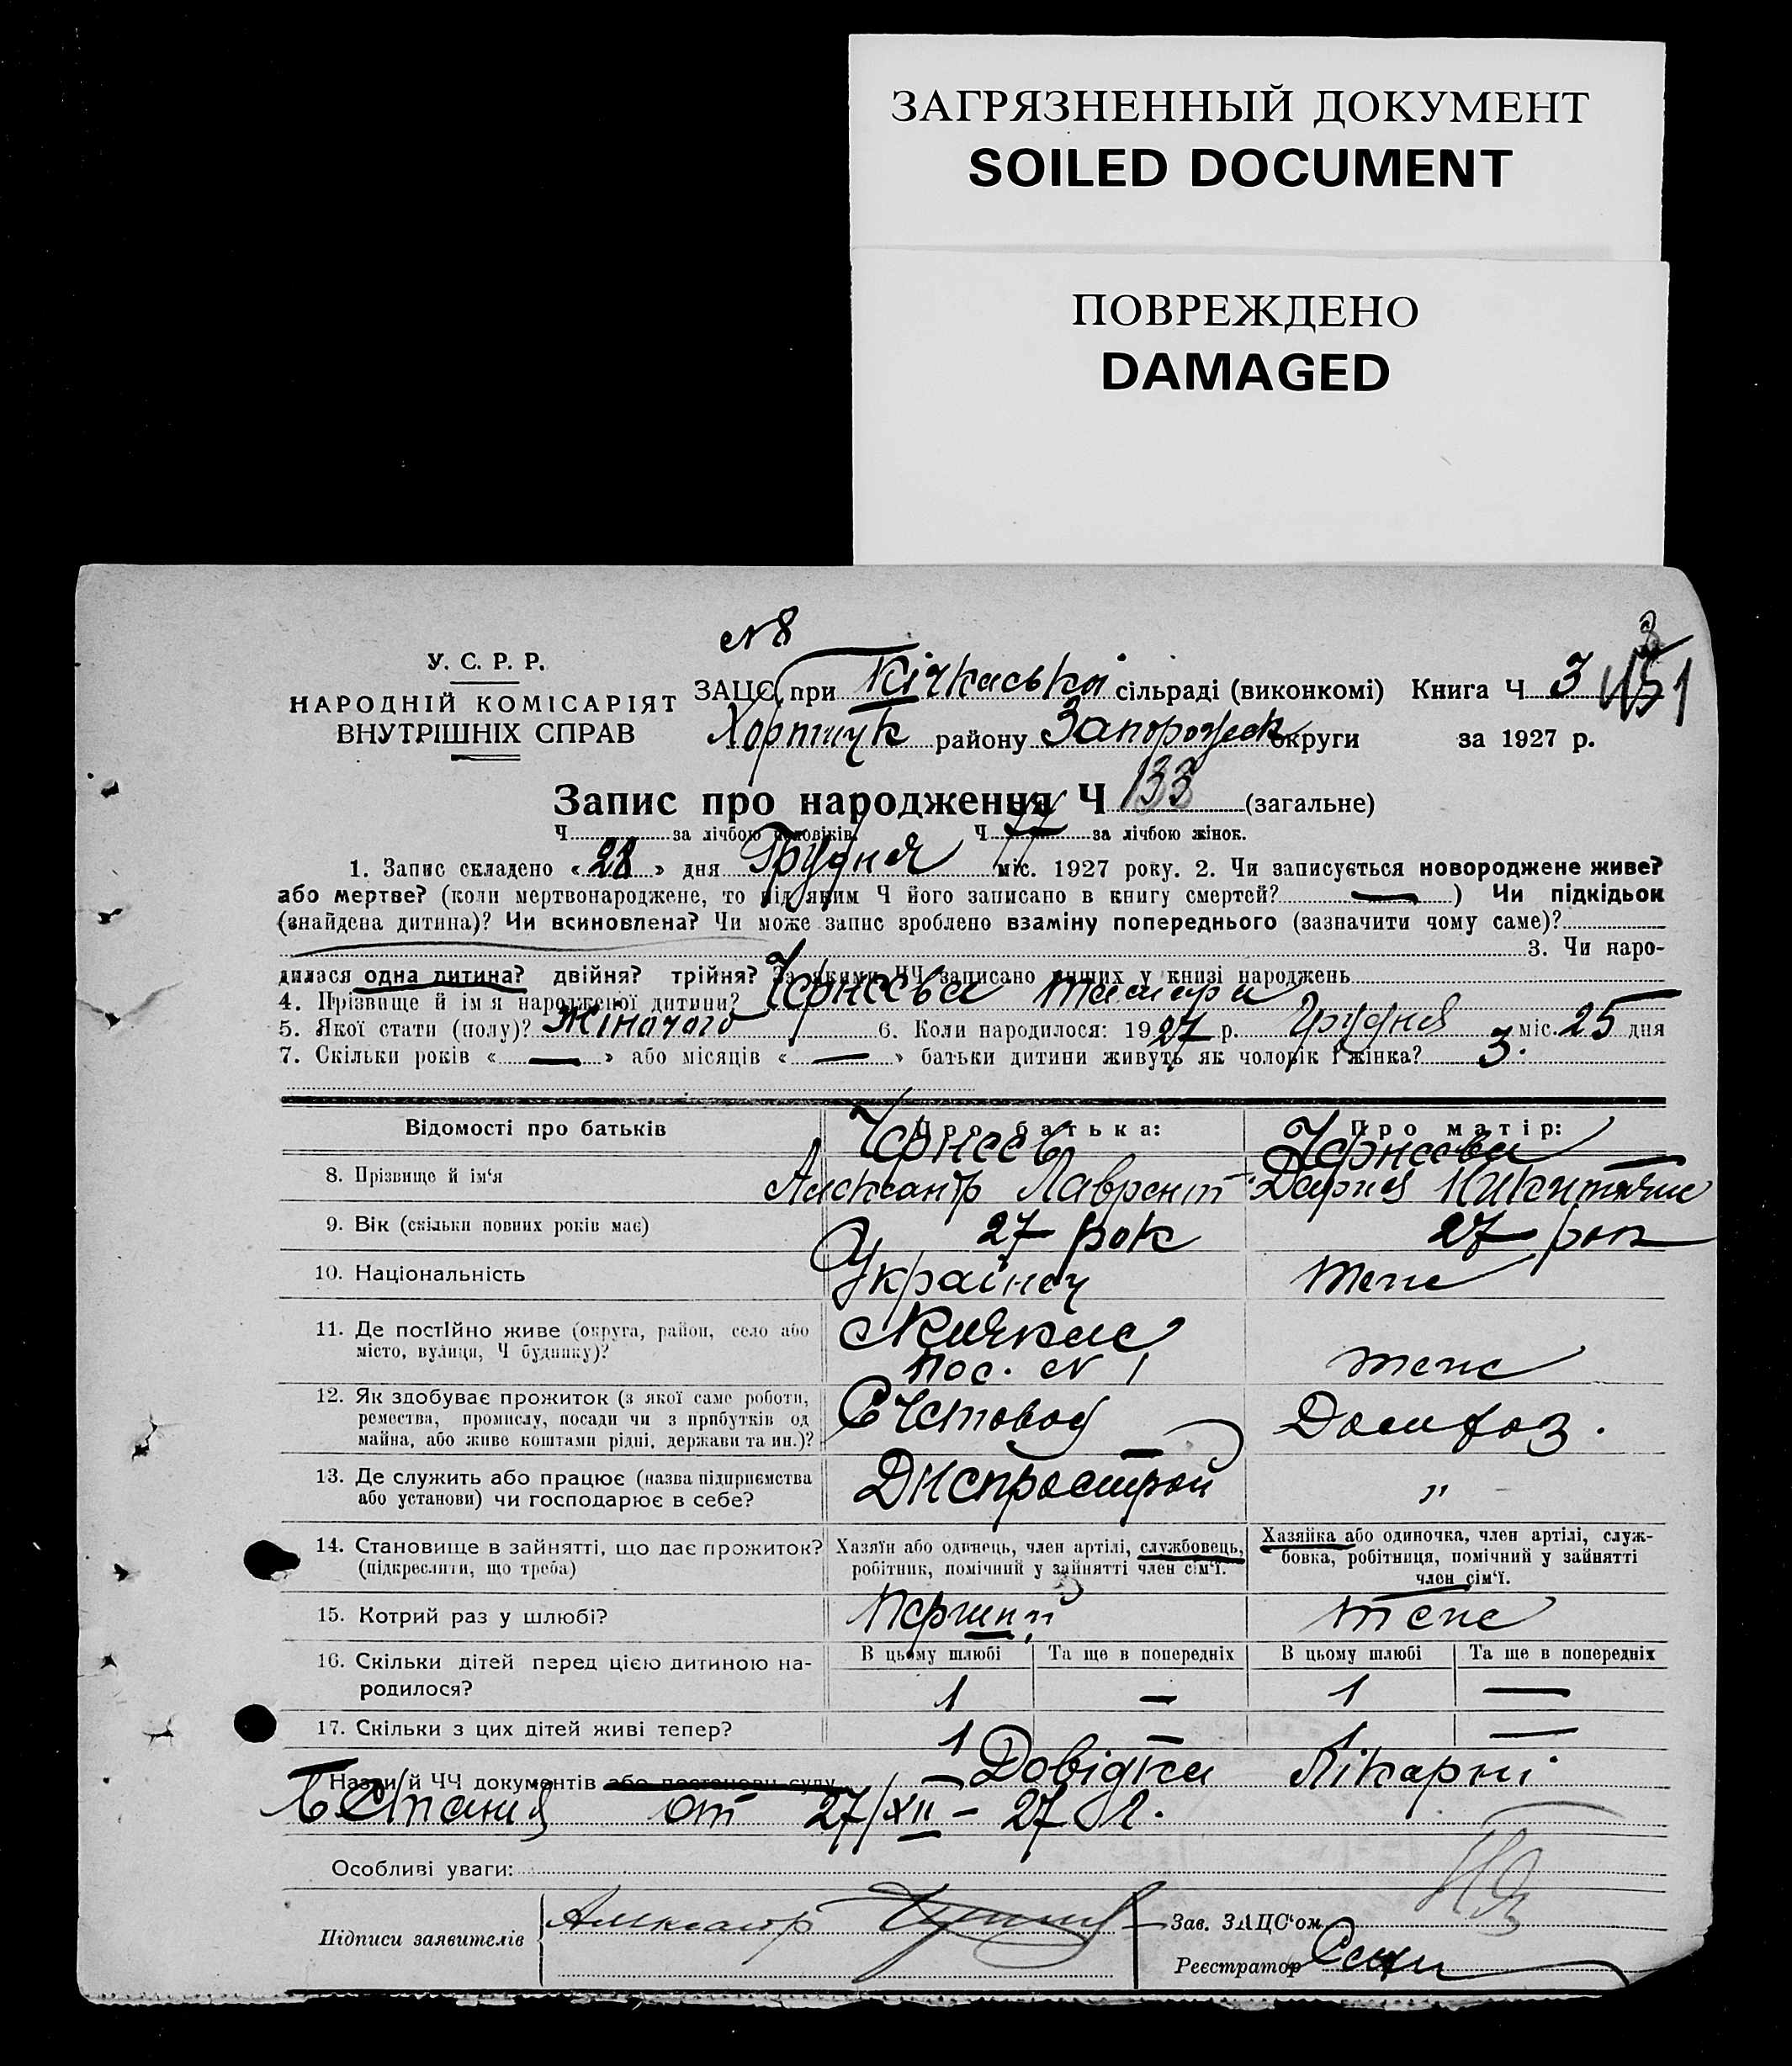 ЗАГРЯЗНЕННЫЙ ДОКУМЕНТ
SOILED DOCUMENT
ПОВРЕЖДЕНО
DAMAGED
№ 8
У. С. Р. Р.
НАРОДНІЙ КОМІСАРІЯТ
ВНУТРІШНІХ СПРАВ
ЗАЦС при Кічкаській сільраді (виконкомі) Книга Ч 3
Хортицьк району Запорожск округи за 1927 р.
Запис про народження Ч 133 (загальне)
Ч за лічбою чоловіків. Ч за лічбою жінок.
1. Запис складено « 28 » дня Грудня міс. 1927 року. 2. Чи записується новороджене живе?
або мертве? (коли мертвонароджене, то під яким Ч його записано в книгу смертей? — ) Чи підкідьок
(знайдена дитина)? Чи всиновлена? Чи може запис зроблено взаміну попереднього (зазначити чому саме)?
3. Чи наро-
дилася одна дитина? двійня? трійня? За якими ЧЧ записано инших у книзі народжень
4. Прізвище й ім'я народженої дитини? Чернєєва Тамара
5. Якої стати (полу)? Жіночого 6. Коли народилося: 1927 р. Грудня міс. 25 дня
7. Скільки років « — » або місяців « — » батьки дитини живуть як чоловік і жінка? 3.
Відомості про батьків Про батька: Про матір:
Чернеев Чернеева
8. Прізвище й ім'я Александр Лаврент. Дария Никитична
9. Вік (скільки повних років має) 27 рок 27 рок
10. Національність Украінец теж
11. Де постійно живе (округа, район, село або
місто, вулиця, Ч будинку)? Кичкас
пос. № 1 теж
12. Як здобуває прожиток (з якої саме роботи,
ремества, промислу, посади чи з прибутків од
майна, або живе коштами рідні, держави та ин.)? Счетовод Домхоз.
13. Де служить або працює (назва підприємства
або установи) чи господарює в себе? Днепрострой "
14. Становище в зайнятті, що дає прожиток?
(підкреслити, що треба)
Хазяїн або одинець, член артілі, службовець,
робітник, помічний у зайнятті член сім'ї.
Хазяйка або одиночка, член артілі, служ-
бовка, робітниця, помічний у зайнятті
член сім'ї.
15. Котрий раз у шлюбі? Перший теж
16. Скільки дітей перед цією дитиною на-
родилося?
В цьому шлюбі Та ще в попередніх В цьому шлюбі Та ще в попередніх
1 — 1 —
17. Скільки з цих дітей живі тепер? 1 — 1 —
Назви й ЧЧ документів або постанови суду — Довідка Лікарні
от 27/XII – 27 г.
Особливі уваги:
Підписи заявителів Александр
Зав. ЗАЦС'ом
Реєстратор